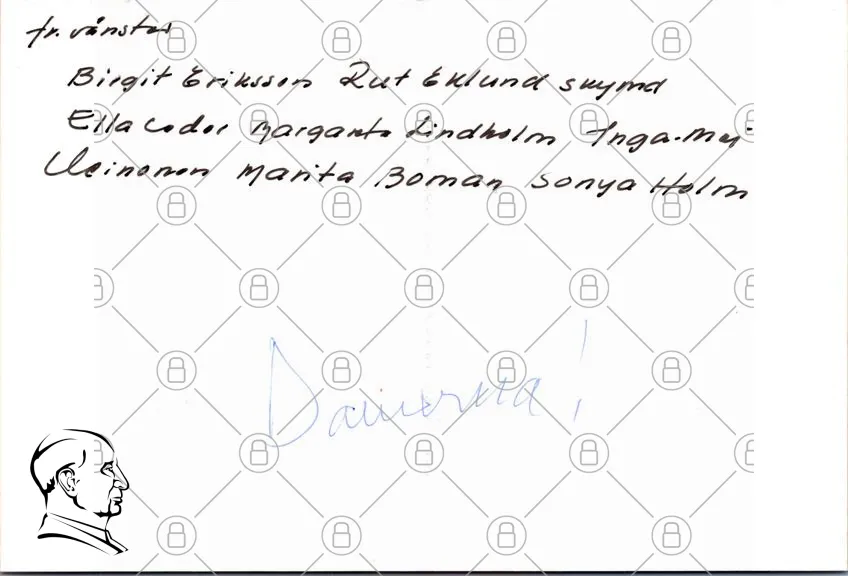 fr. vänster
Birgit Eriksson Rut Eklund skymd
Ella Margareta Lindholm Inga-Maj
Marita Boman Sonya Holm
Damerna!